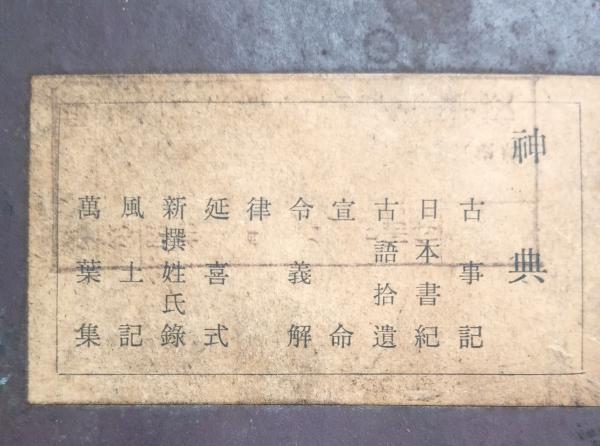 神典
古事記
日本書紀
古語拾遺
宣命
令義解
律
延喜式
新撰姓氏錄
風土記
萬葉集